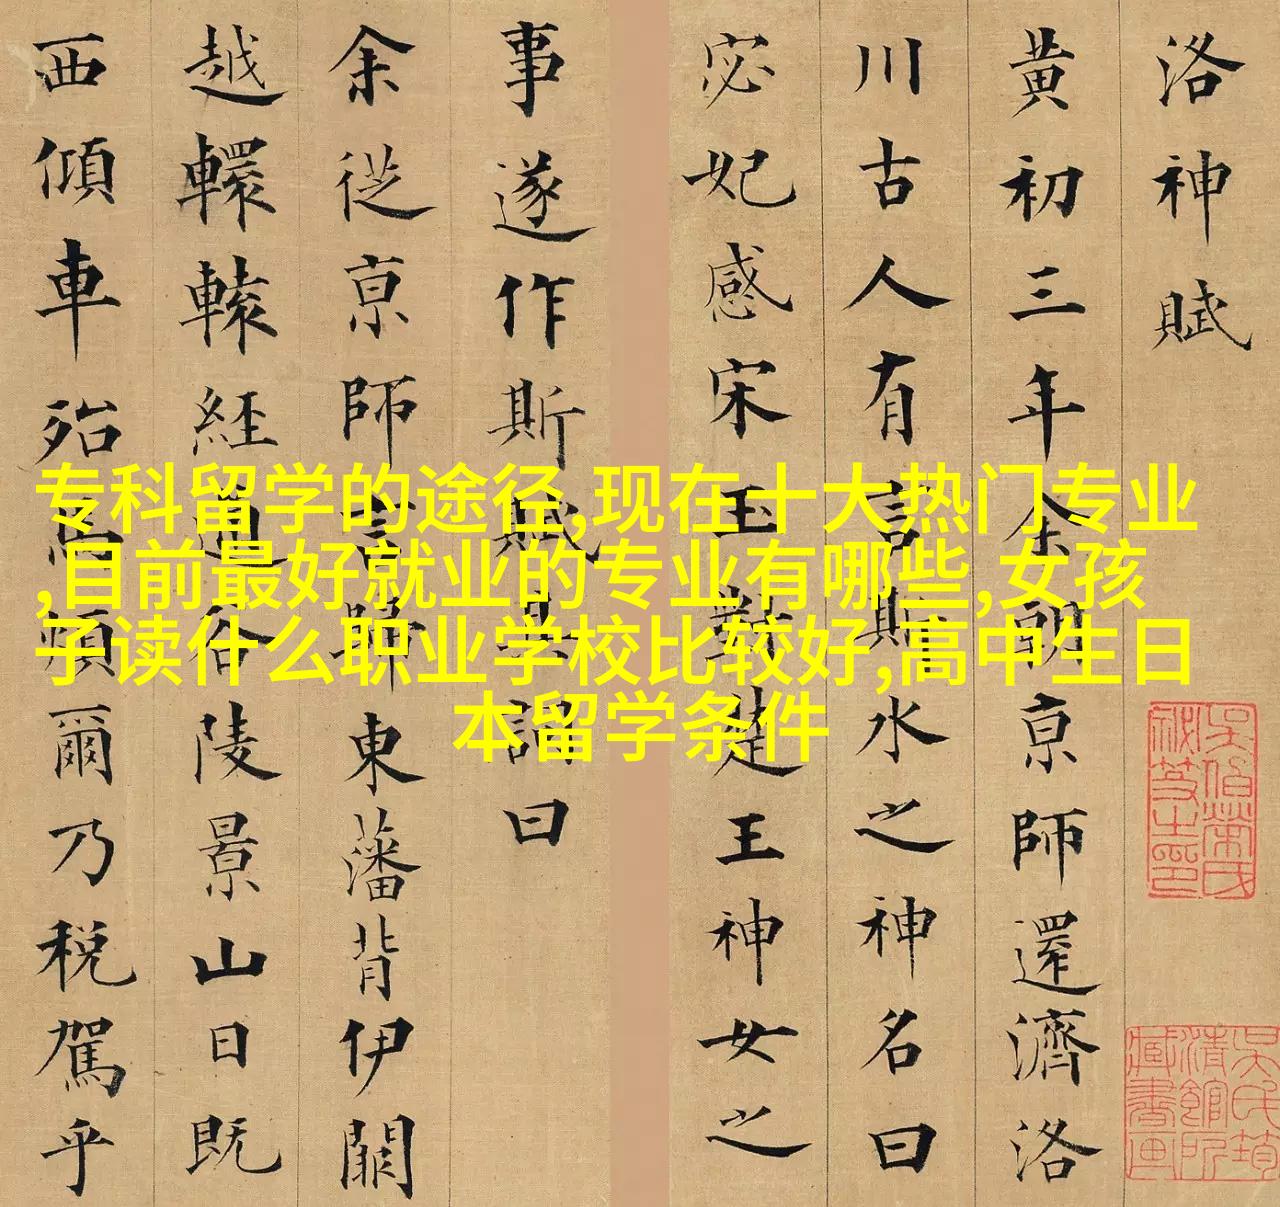 洛神賦
黄初三年余朝京師還濟洛
川古人有言斯水之神名曰
宓妃感宋玉對楚王神女之
事遂作斯賦其詞曰
余從京師言歸東藩背伊闕
越轘轅經通谷陵景山日既
西傾車殆馬煩爾乃税駕乎
专科留学的途径,现在十大热门专业
,目前最好就业的专业有哪些,女孩
子读什么职业学校比较好,高中生日
本留学条件